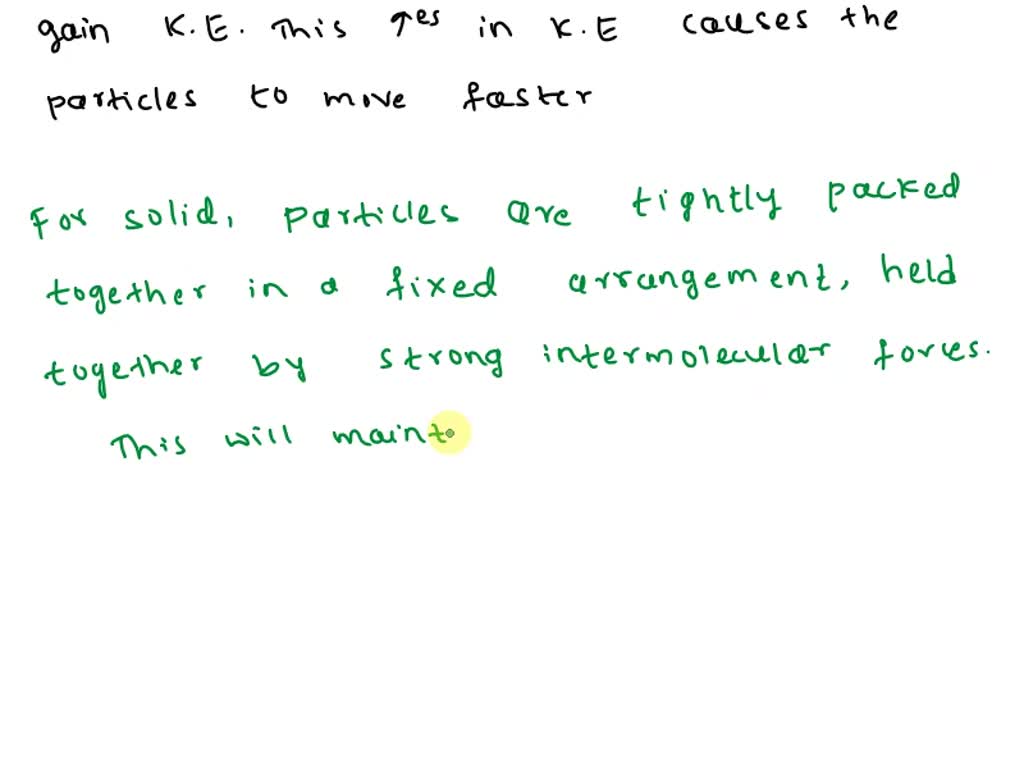 gain K.E. This ↑es in K.E causes the
particles to move faster
For solid, particles are tightly packed
together in a fixed arrangement, held
together by strong intermolecular forces.
This will maint